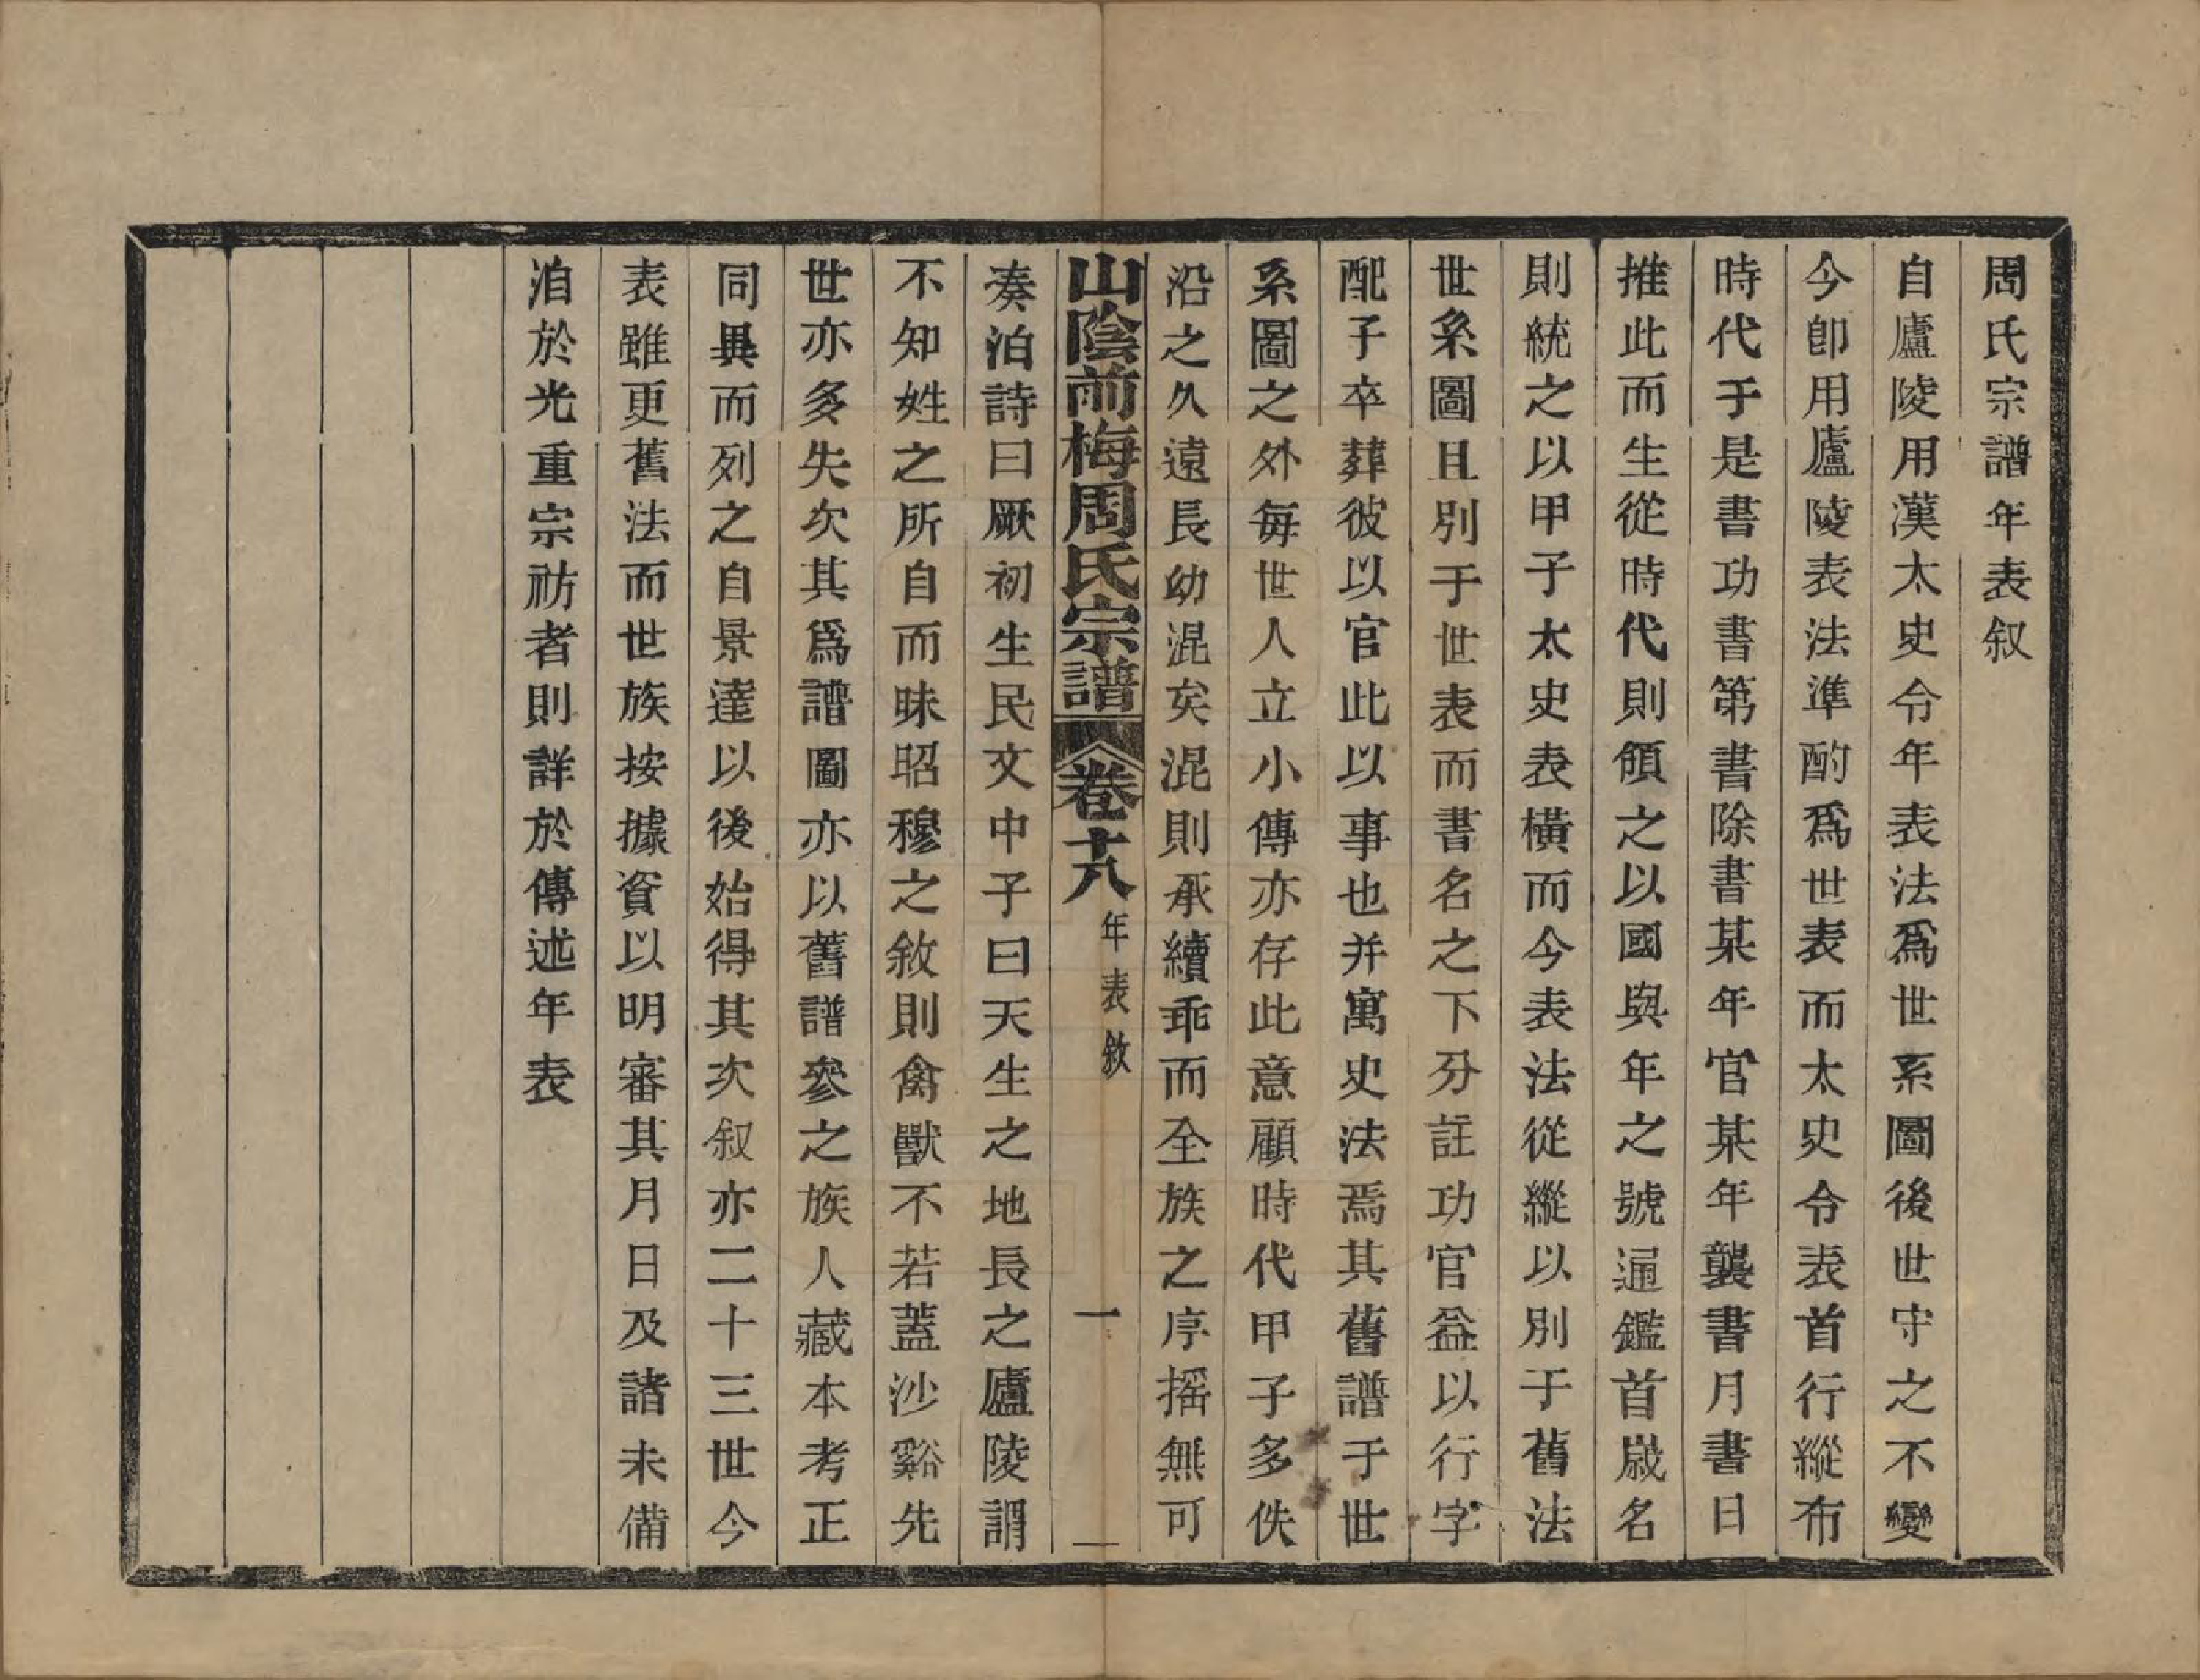 周氏宗譜年表叙
自廬陵用漢太史令年表法爲世系圖後世守之不變
今卽用廬陵表法準酌爲世表而太史令表首行縱布
時代于是書功書第書除書某年官某年襲書月書日
推此而生從時代則領之以國與年之號通鑑首嵗名
則統之以甲子太史表橫而今表法從縱以別于舊法
世系圖且別于世表而書名之下分註功官益以行字
配子卒葬彼以官此以事也并寓史法焉其舊譜于世
系圖之外每世人立小傳亦存此意顧時代甲子多佚
沿之久遠長幼混矣混則承續乖而全族之序搖無可
山陰前梅周氏宗譜 卷十八 年表敘 一
奏泊詩曰厥初生民文中子曰天生之地長之廬陵謂
不知姓之所自而昧昭穆之敘則禽獸不若蓋沙谿先
世亦多失次其爲譜圖亦以舊譜參之族人藏本考正
同異而列之自景達以後始得其次叙亦二十三世今
表雖更舊法而世族按據資以明審其月日及諸未備
洎於光重宗祊者則詳於傳述年表